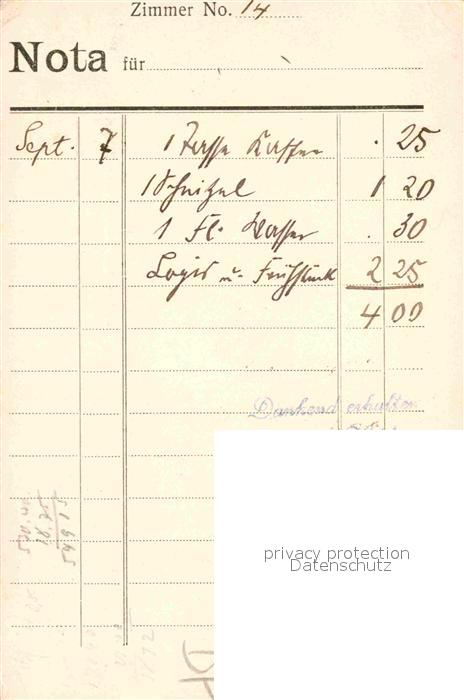 Zimmer No. 14
Nota für
Sept. 7 1 Tasse Kaffee . 25
1 Schnitzel 1 20
1 Fl. Wasser . 30
Logis u. Frühstück 2 25
4 00
Dankend erhalten
privacy protection
Datenschutz